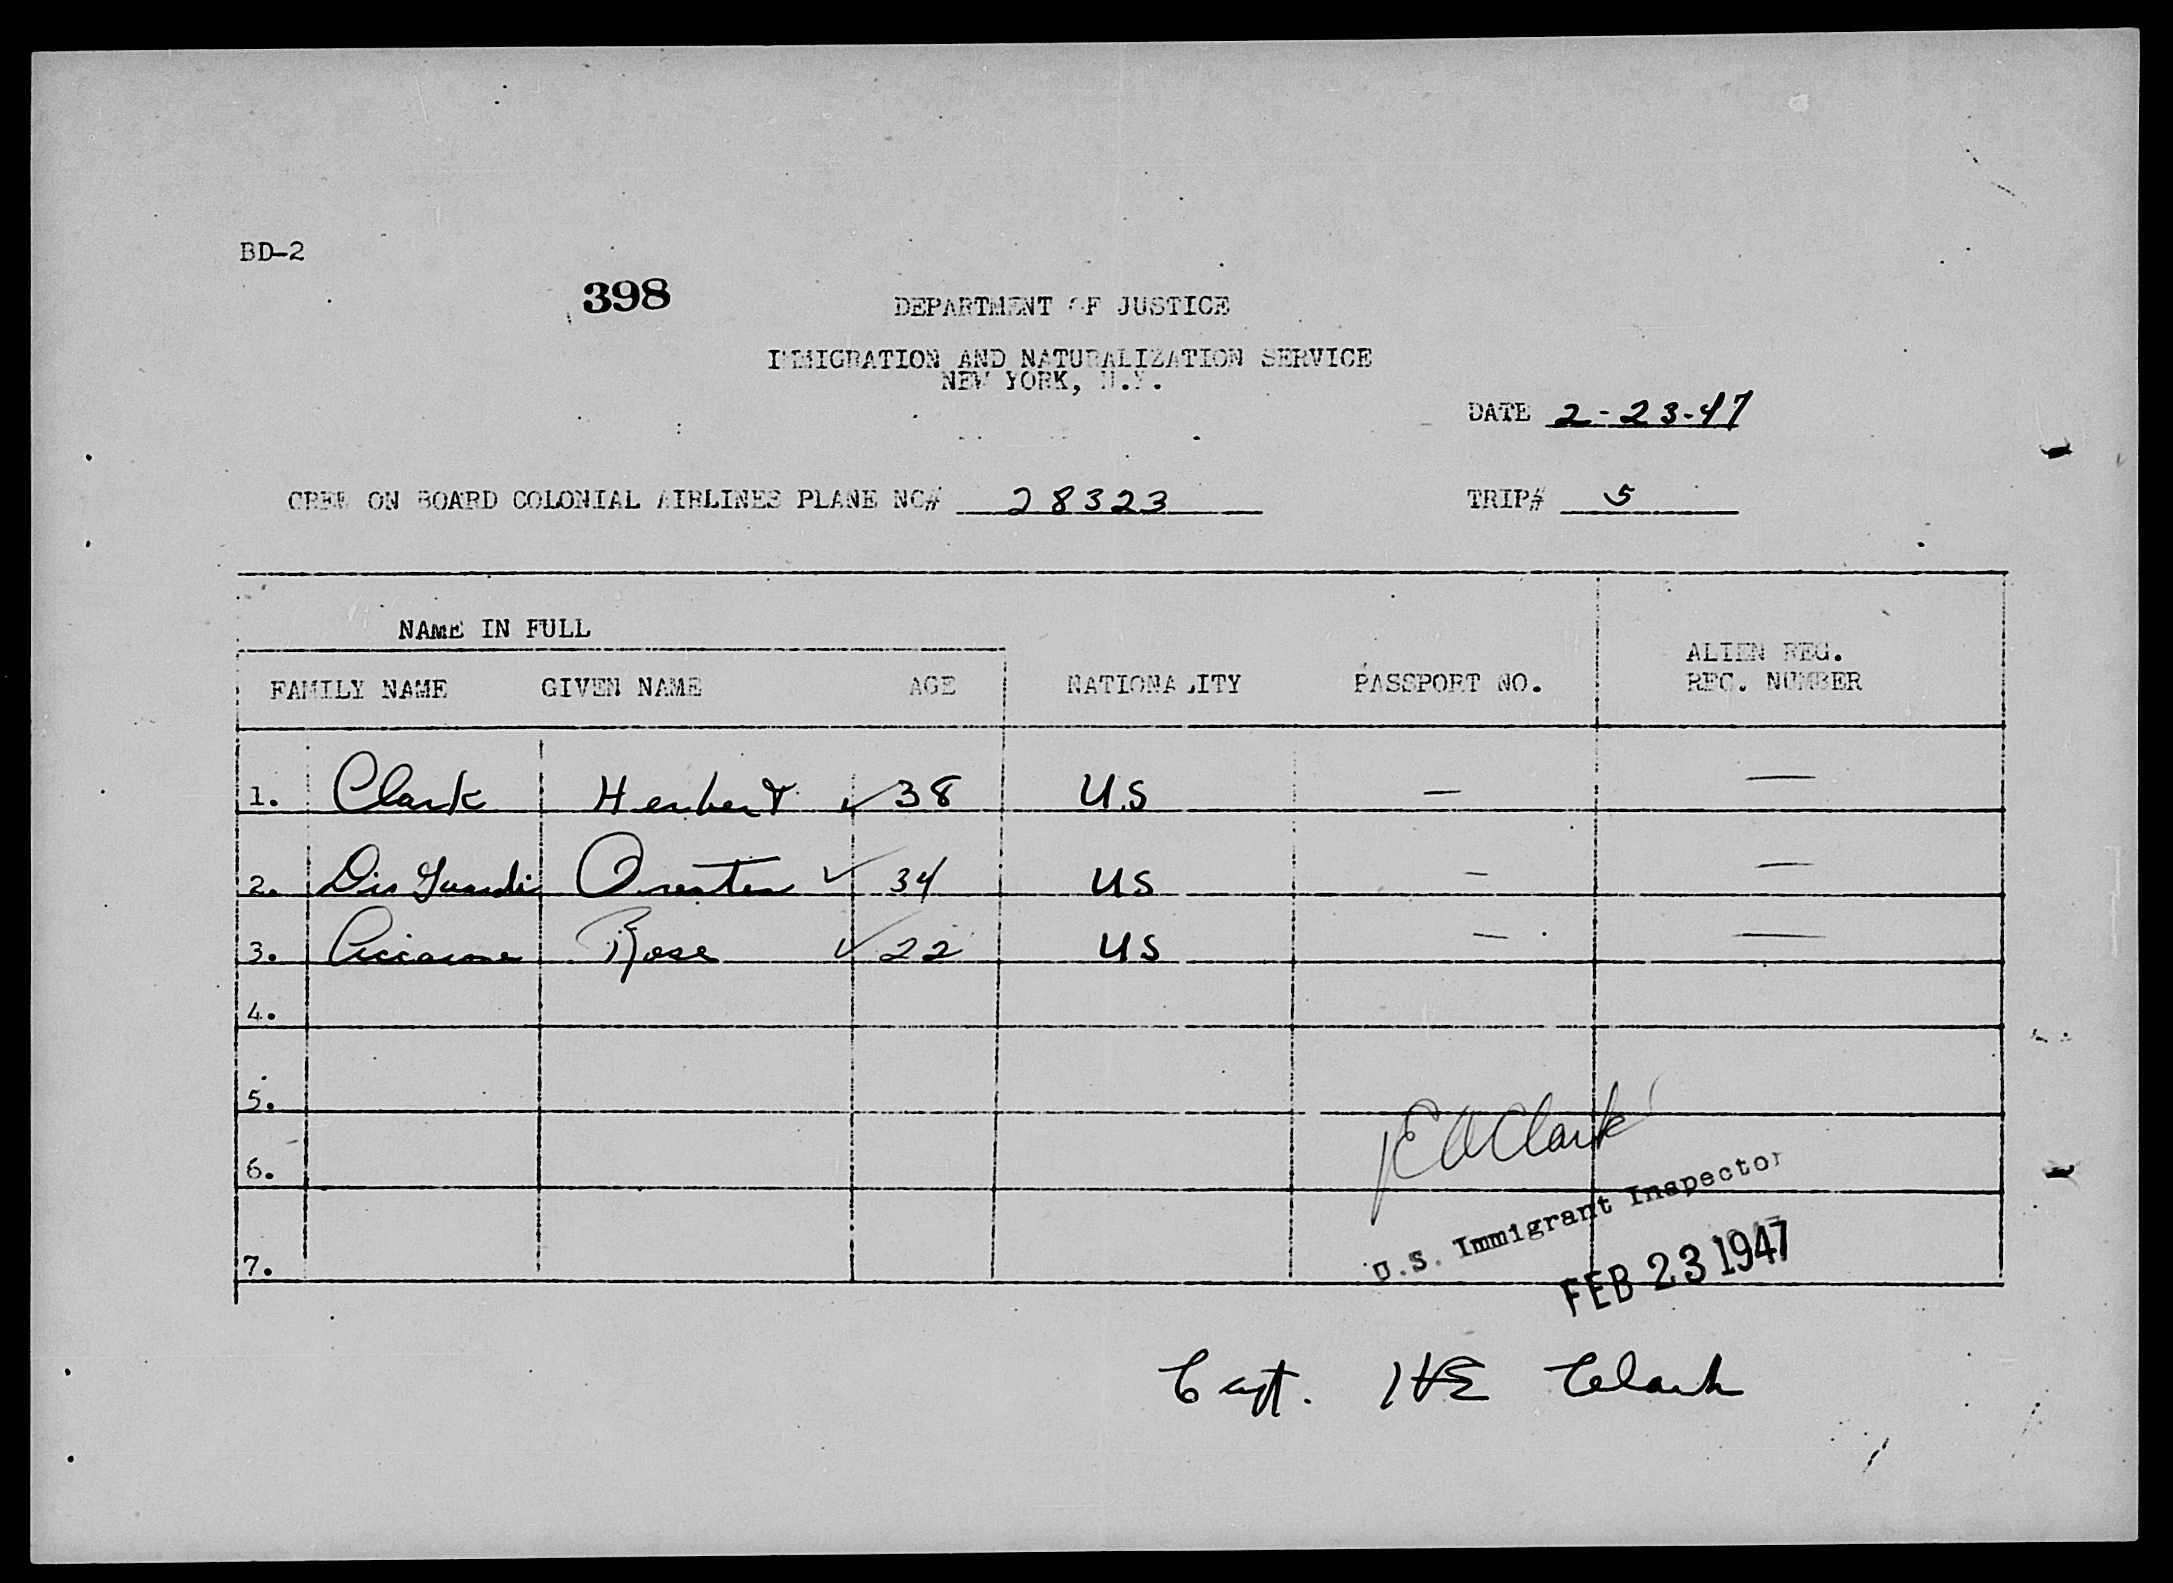 BD-2
398
DEPARTMENT OF JUSTICE
IMMIGRATION AND NATURALIZATION SERVICE
NEW YORK, N.Y.
DATE 2-23-47
CREW ON BOARD COLONIAL AIRLINES PLANE NC# 28323 TRIP# 5
NAME IN FULL
FAMILY NAME GIVEN NAME AGE NATIONALITY PASSPORT NO. ALIEN REG. REC. NUMBER
1. Clark Herbert ✓ 38 U.S — —
2. ✓ 34 US — —
3. Rose ✓ 22 US — —
4.
5.
6.
7.
Clark
U.S. Immigrant Inspector
FEB 23 1947
Capt. HE Clark